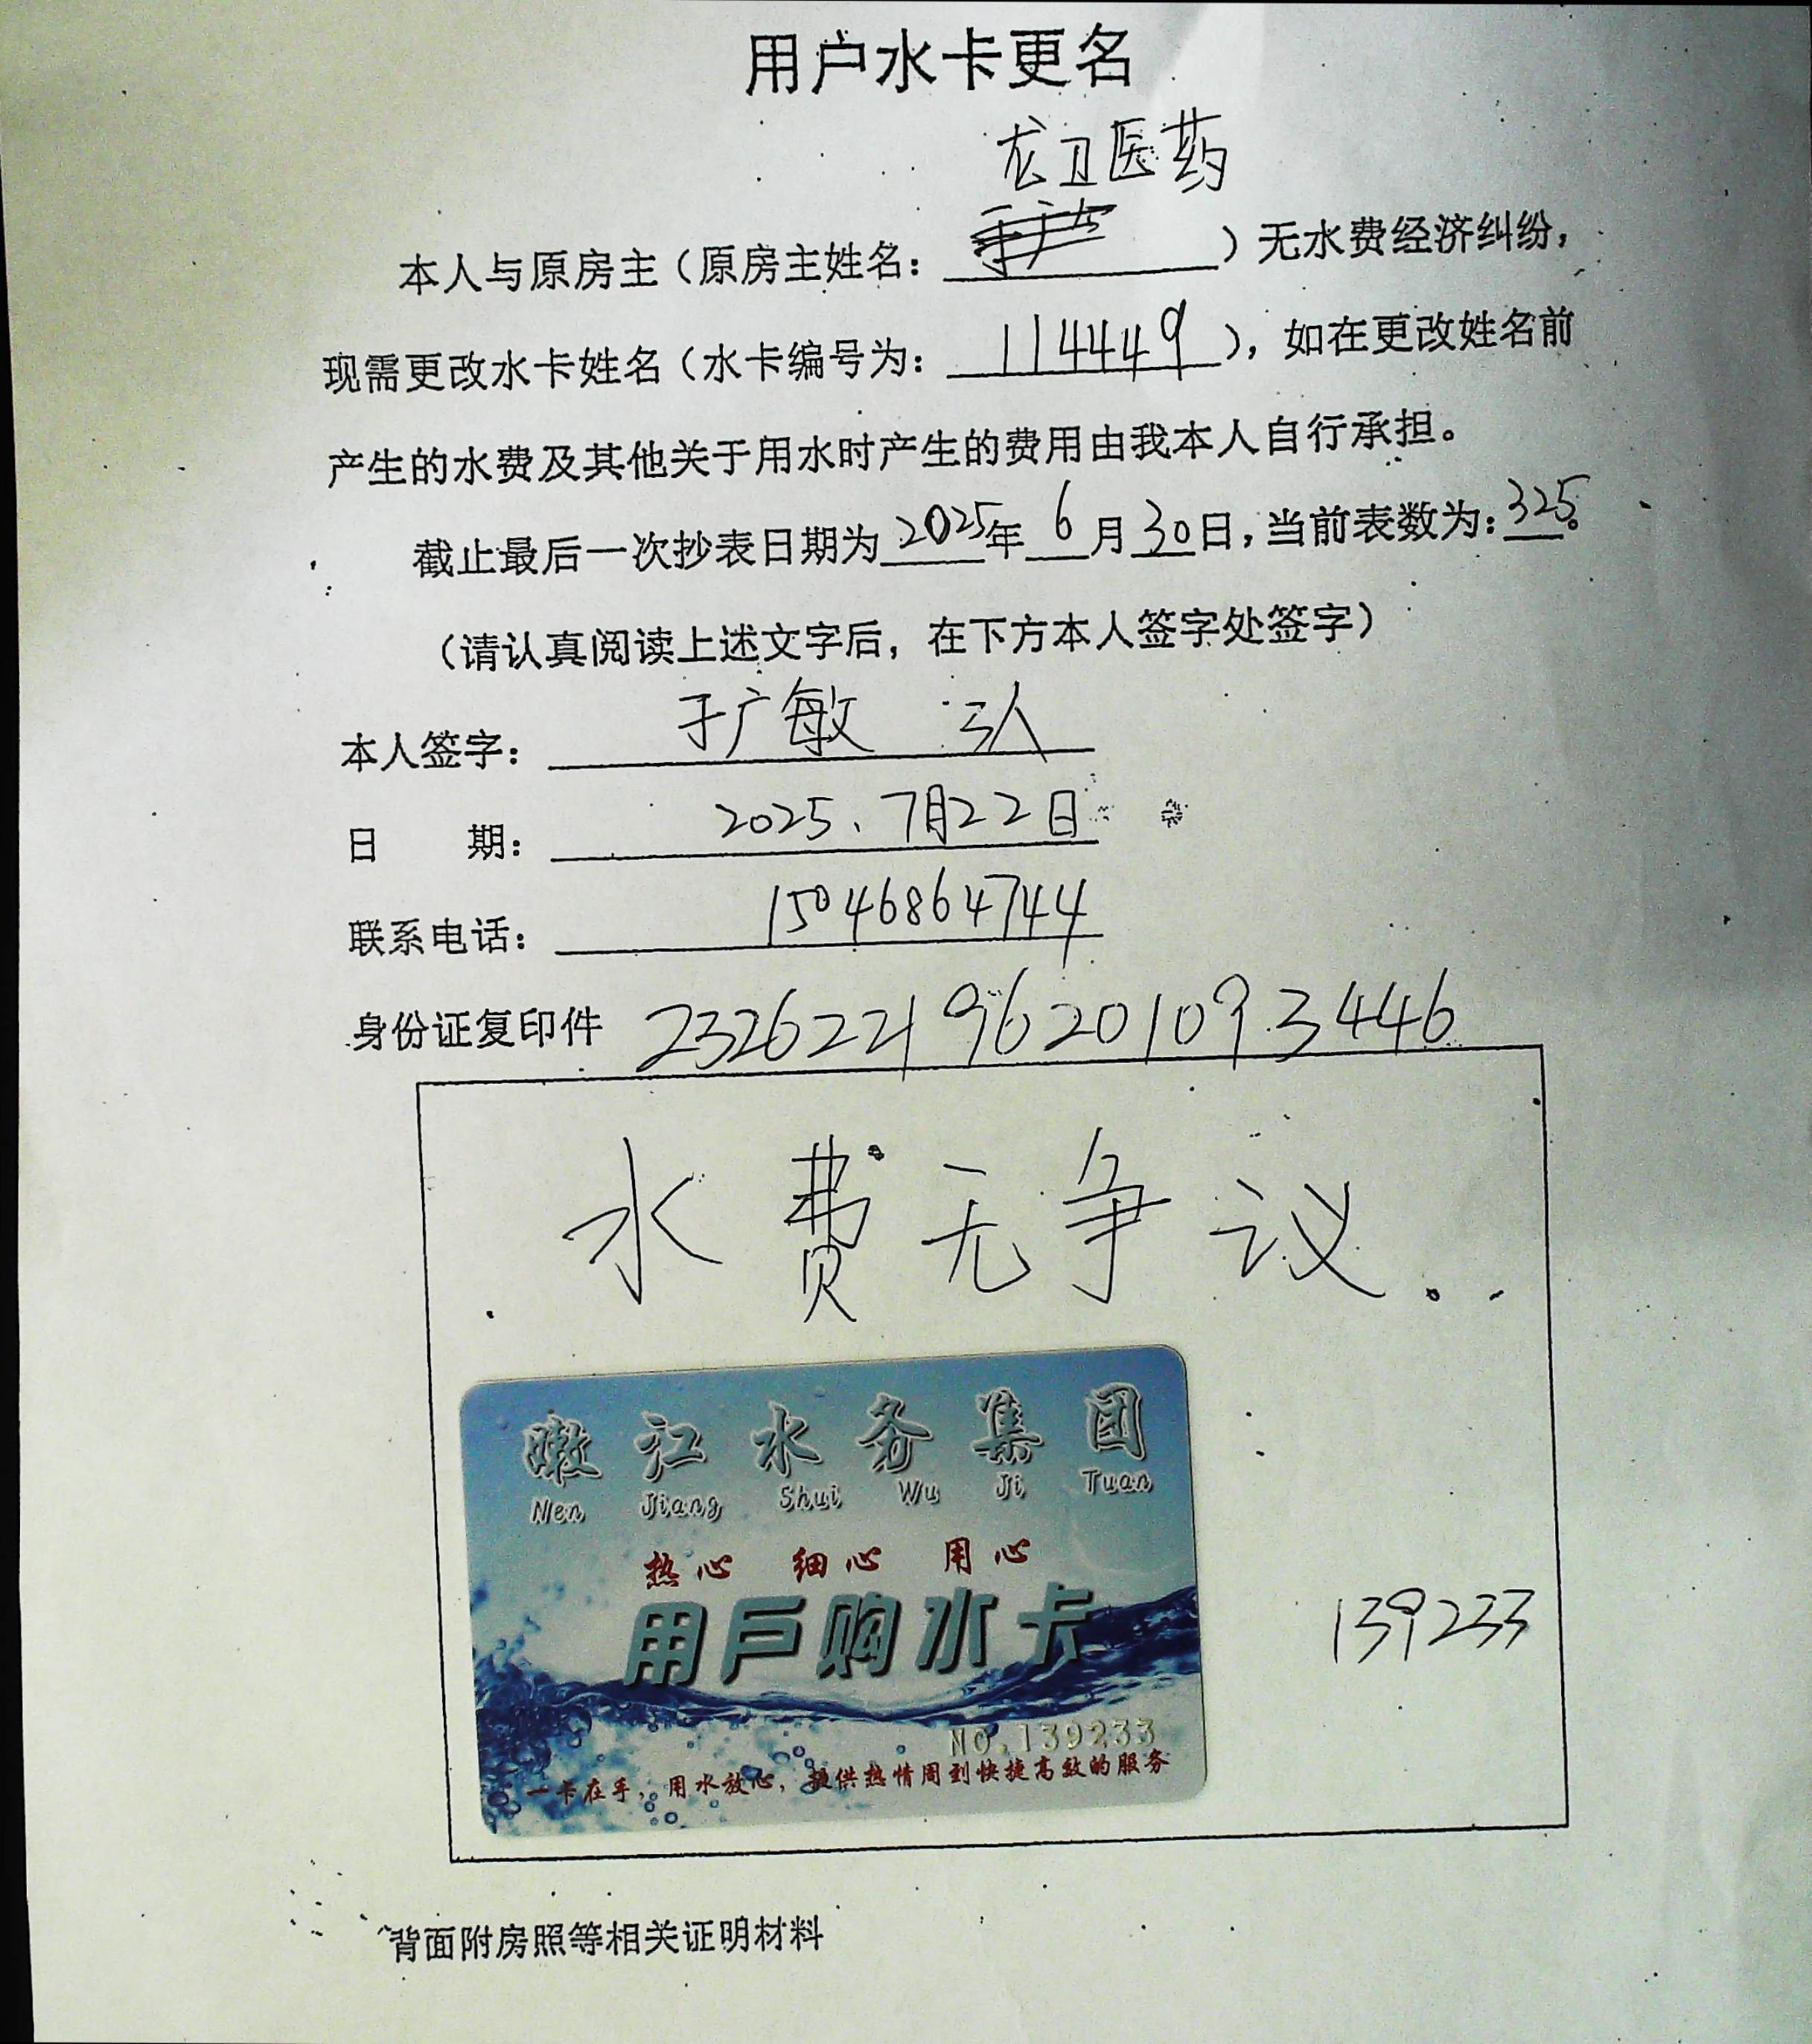 用户水卡更名
龙卫医药
本人与原房主（原房主姓名：）无水费经济纠纷，
现需更改水卡姓名（水卡编号为：114449），如在更改姓名前
产生的水费及其他关于用水时产生的费用由我本人自行承担。
截止最后一次抄表日期为2025年6月30日，当前表数为：325。
（请认真阅读上述文字后，在下方本人签字处签字）
本人签字：于广敏 3人
日 期：2025、7月22日
联系电话：15046864744
身份证复印件 232622196201093446
水费无争议。
嫩江水务集团
Nen Jiang Shui Wu Ji Tuan
热心 细心 用心
用户购水卡
139233
NO.139233
一卡在手，用水放心，提供热情周到快捷高效的服务
背面附房照等相关证明材料